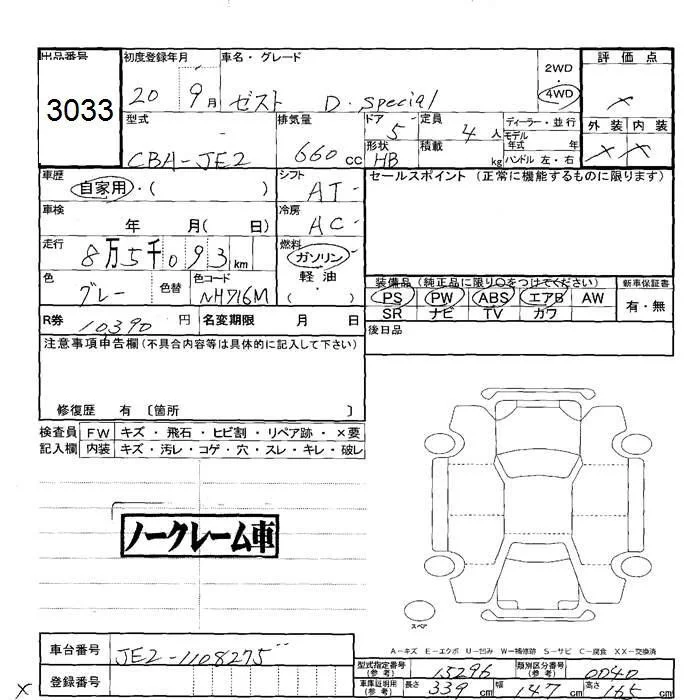 出品番号 初度登録年月 車名・グレード 2WD 評価点
3033 20 9月 ゼスト D・special ・ 4WD ×
型式 排気量 ドア 5 定員 4人 ディーラー・並行 外装 内装
CBA-JE2 660cc 形状 HB 積載 kg モデル年式 年 × ×
ハンドル 左・右
車歴 自家用・( ) シフト AT セールスポイント (正常に機能するものに限ります)
車検 年 月( 日) 冷房 AC
走行 8万5千093km 燃料 ガソリン・軽油( )
色 グレー 色替 色コード NH716M 装備品 (純正品に限り○をつけてください) 新車保証書
PS PW ABS エアB AW 有・無
SR ナビ TV カワ
R券 10390円 名変期限 月 日 後日品
注意事項申告欄(不具合内容等は具体的に記入して下さい)
修復歴 有 〔箇所 〕
検査員 FW キズ・飛石・ヒビ割・リペア跡・×要
記入欄 内装 キズ・汚レ・コゲ・穴・スレ・キレ・破レ
ノークレーム車
スペア
A−キズ E−エクボ U−凹み W−補修跡 S−サビ C−腐食 XX−交換済
車台番号 JE2-1108275
型式指定番号(参考) 15296 類別区分番号(参考) 0040
× 登録番号 車庫証明用(参考) 長さ 339cm 幅 147cm 高さ 165cm